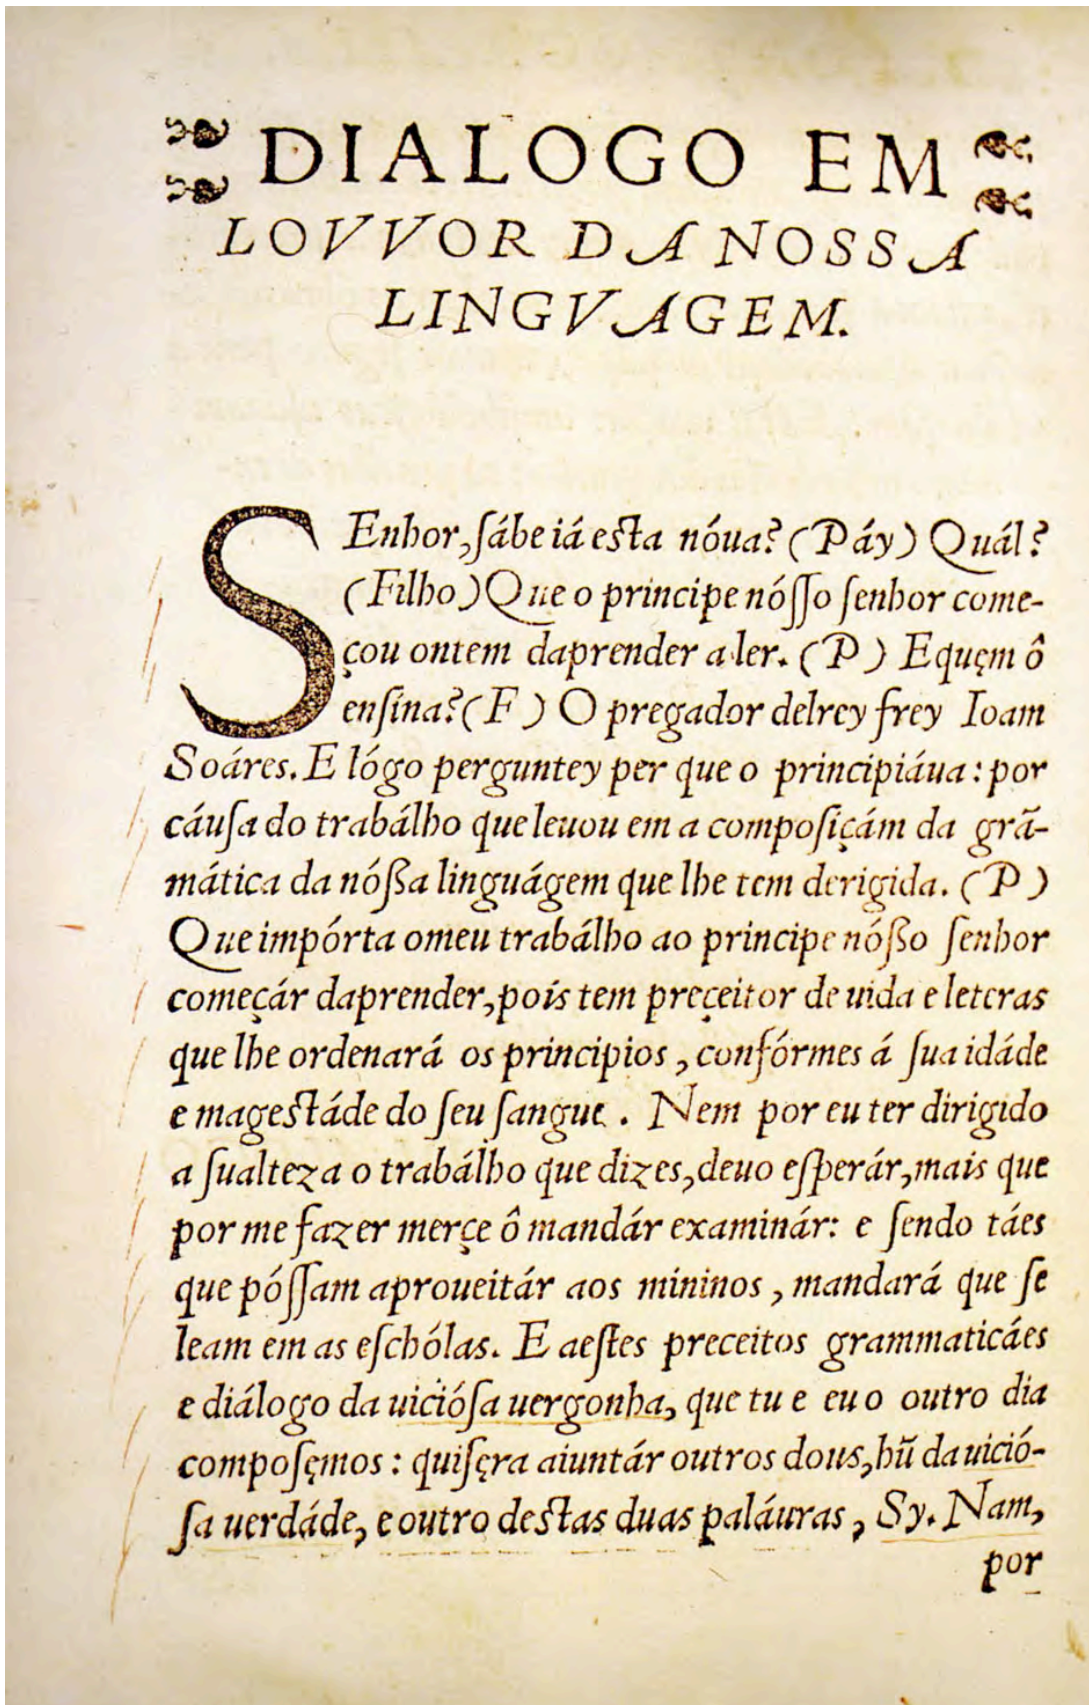 DIALOGO EM
LOVVOR DA NOSSA
LINGVAGEM.
SEnhor, ſábe iá eſta nóua? (Páy) Quál?
(Filho) Que o principe nóſſo ſenhor come-
çou ontem daprender a ler. (P) E quęm ô
enſina? (F) O pregador delrey frey Ioam
Soáres. E lógo perguntey per que o principiáua: por
cáuſa do trabálho que leuou em a compoſiçám da grã-
mática da nóßa linguágem que lhe tem derigida. (P)
Que impórta o meu trabálho ao principe nóßo ſenhor
começár daprender, pois tem preçeitor de uida e leteras
que lhe ordenará os principios, confórmes á ſua idáde
e mageſtáde do ſeu ſangue. Nem por eu ter dirigido
a ſualteza o trabálho que dizes, deuo eſperár, mais que
por me fazer merçe ô mandár examinár: e ſendo táes
que póſſam aproueitár aos mininos, mandará que ſe
leam em as eſchólas. E aeſtes preceitos grammaticáes
e diálogo da uicióſa uergonha, que tu e eu o outro dia
compoſęmos: quiſęra aiuntár outros dous, hũ da uició-
ſa uerdáde, e outro deſtas duas paláuras, Sy. Nam,
por